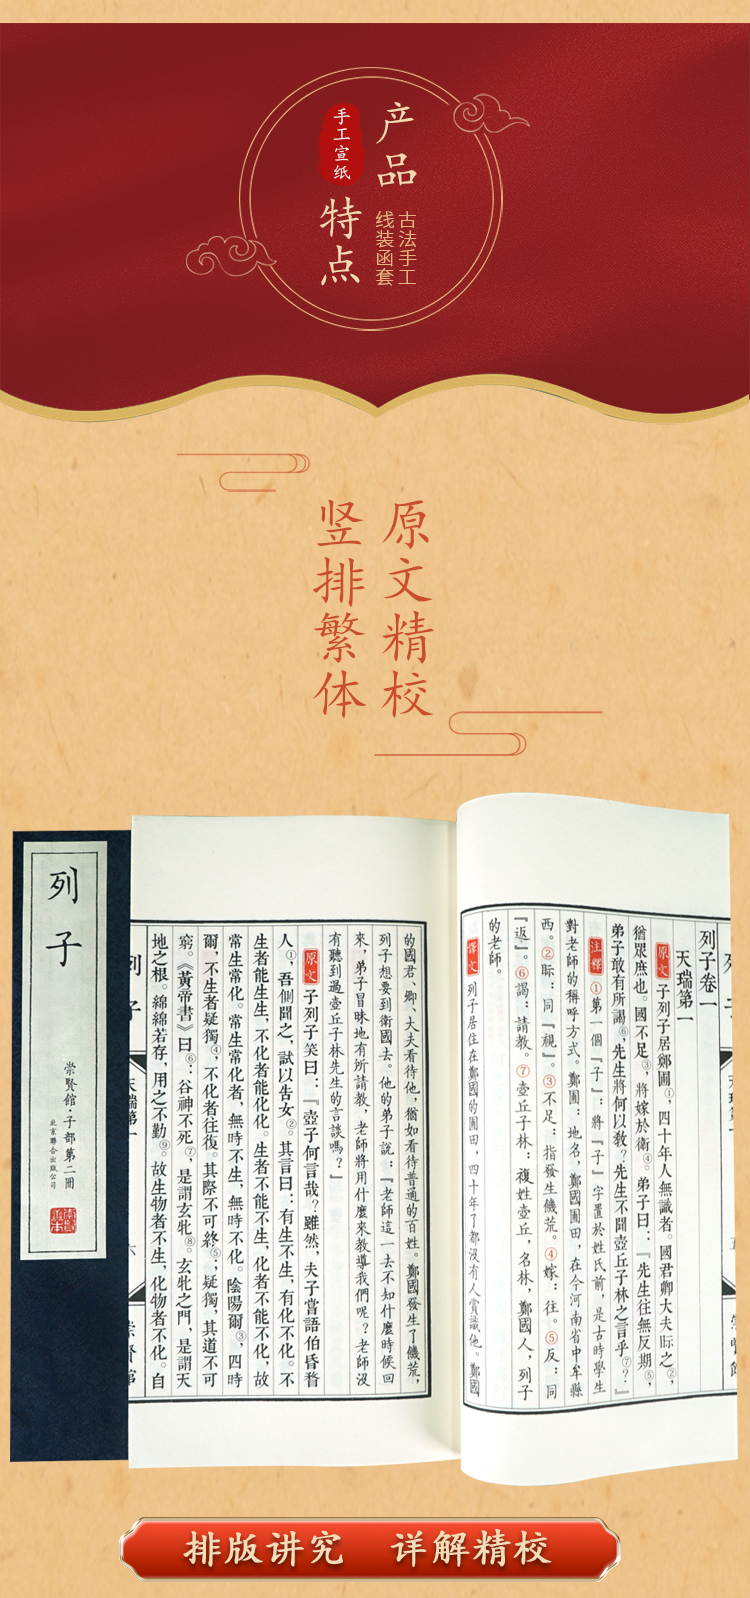 产品
特点
手工宣纸
古法手工
线装函套
原文精校
竖排繁体
列子
崇賢館·子部第二冊
北京聯合出版公司
列子卷一
天瑞第一
原文 子列子居鄭圃①，四十年人無識者。國君卿大夫眎之②，
猶眾庶也。國不足③，將嫁於衛④。弟子曰：『先生往無反期⑤，
弟子敢有所謁⑥，先生將何以教？先生不聞壺丘子林之言乎⑦？』
注釋 ①第一個『子』：將『子』字置於姓氏前，是古時學生
對老師的稱呼方式。鄭圃：地名，鄭國圃田，在今河南省中牟縣
西。②眎：同『視』。③不足：指發生饑荒。④嫁：往。⑤反：同
『返』。⑥謁：請教。⑦壺丘子林：複姓壺丘，名林，鄭國人，列子
的老師。
譯文 列子居住在鄭國的圃田，四十年了都沒有人賞識他。鄭國
的國君、卿、大夫看待他，猶如看待普通的百姓。鄭國發生了饑荒，
列子想要到衛國去。他的弟子說：『老師這一去不知什麼時候回
來，弟子冒昧地有所請教，老師將用什麼來教導我們呢？老師沒
有聽到過壺丘子林先生的言談嗎？』
原文 子列子笑曰：『壺子何言哉？雖然，夫子嘗語伯昏瞀
人①，吾側聞之，試以告女②。其言曰：有生不生，有化不化。不
生者能生生，不化者能化化。生者不能不生，化者不能不化，故
常生常化。常生常化者，無時不生，無時不化。陰陽爾③，四時
爾，不生者疑獨④，不化者往復。其際不可終⑤；疑獨，其道不可
窮。《黃帝書》曰⑥：谷神不死⑦，是謂玄牝⑧。玄牝之門，是謂天
地之根。綿綿若存，用之不勤⑨。故生物者不生，化物者不化。自
列子
天瑞第一
六
崇賢館
排版讲究 详解精校